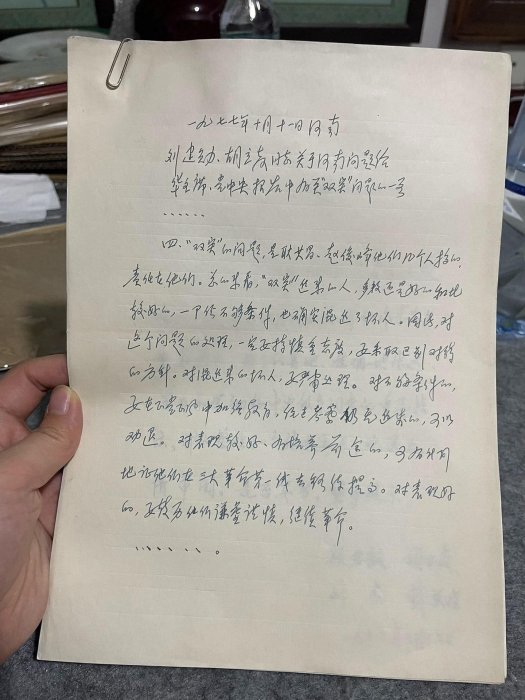 一九七七年十月十一日河南
刘建勋、胡立教同志关于河南问题给
华主席、党中央报告中有关“双突”问题的一号
……
四、“双突”的问题，是耿其昌、赵俊峰他们几个人搞的，
责任在他们。总的来看，“双突”进来的人，多数还是好的和比
较好的，一部份不够条件，也确实混进了坏人。因此，对
这个问题的处理，一定要持慎重态度，要采取区别对待
的方针。对混进来的坏人，要严肃处理。对不够条件的，
要在整党整风中加强教育，经过考察仍不够的，可以
劝退。对表现较好、有培养前途的，可有计划
地让他们在三大革命第一线去锻炼提高。对表现好
的，要教育他们谦虚谨慎，继续革命。
……。